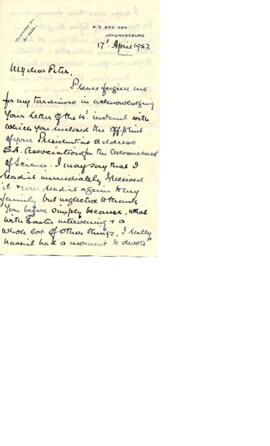 P.O. BOX 489
JOHANNESBURG
17th April 1942
My dear Peter,
Please forgive me
for my tardiness in acknowledging
your letter of the instant with
which you enclosed the offprint
of your Presidential address
S.A. Association for the Advancement
of Science. I may say that I
read it immediately I received
it & read it again to my
family but neglected to thank
you before simply because, what
with Easter intervening & a
whole lot of other things, I really
haven't had a moment to devote